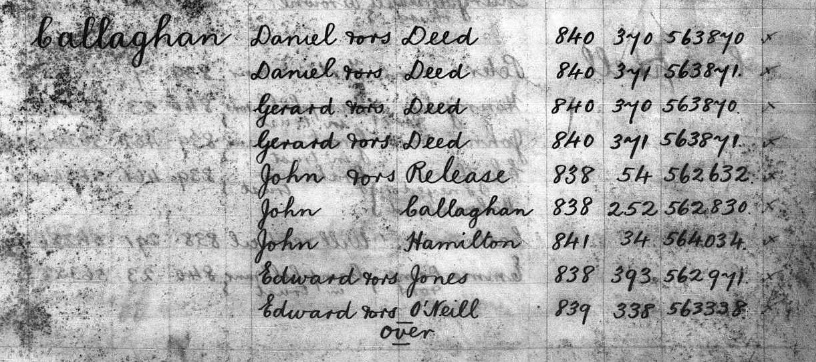 Callaghan Daniel & ors Deed 840 370 563870 x
Daniel & ors Deed 840 371 563871. x
Gerard & ors Deed 840 370 563870. x
Gerard & ors Deed 840 371 563871. x
John & ors Release 838 54 562632 x
John Callaghan 838 252 562830. x
John Hamilton 841 34 564034. x
Edward & ors Jones 838 393 562971. x
Edward & ors O'Neill 839 338 563338 x
over